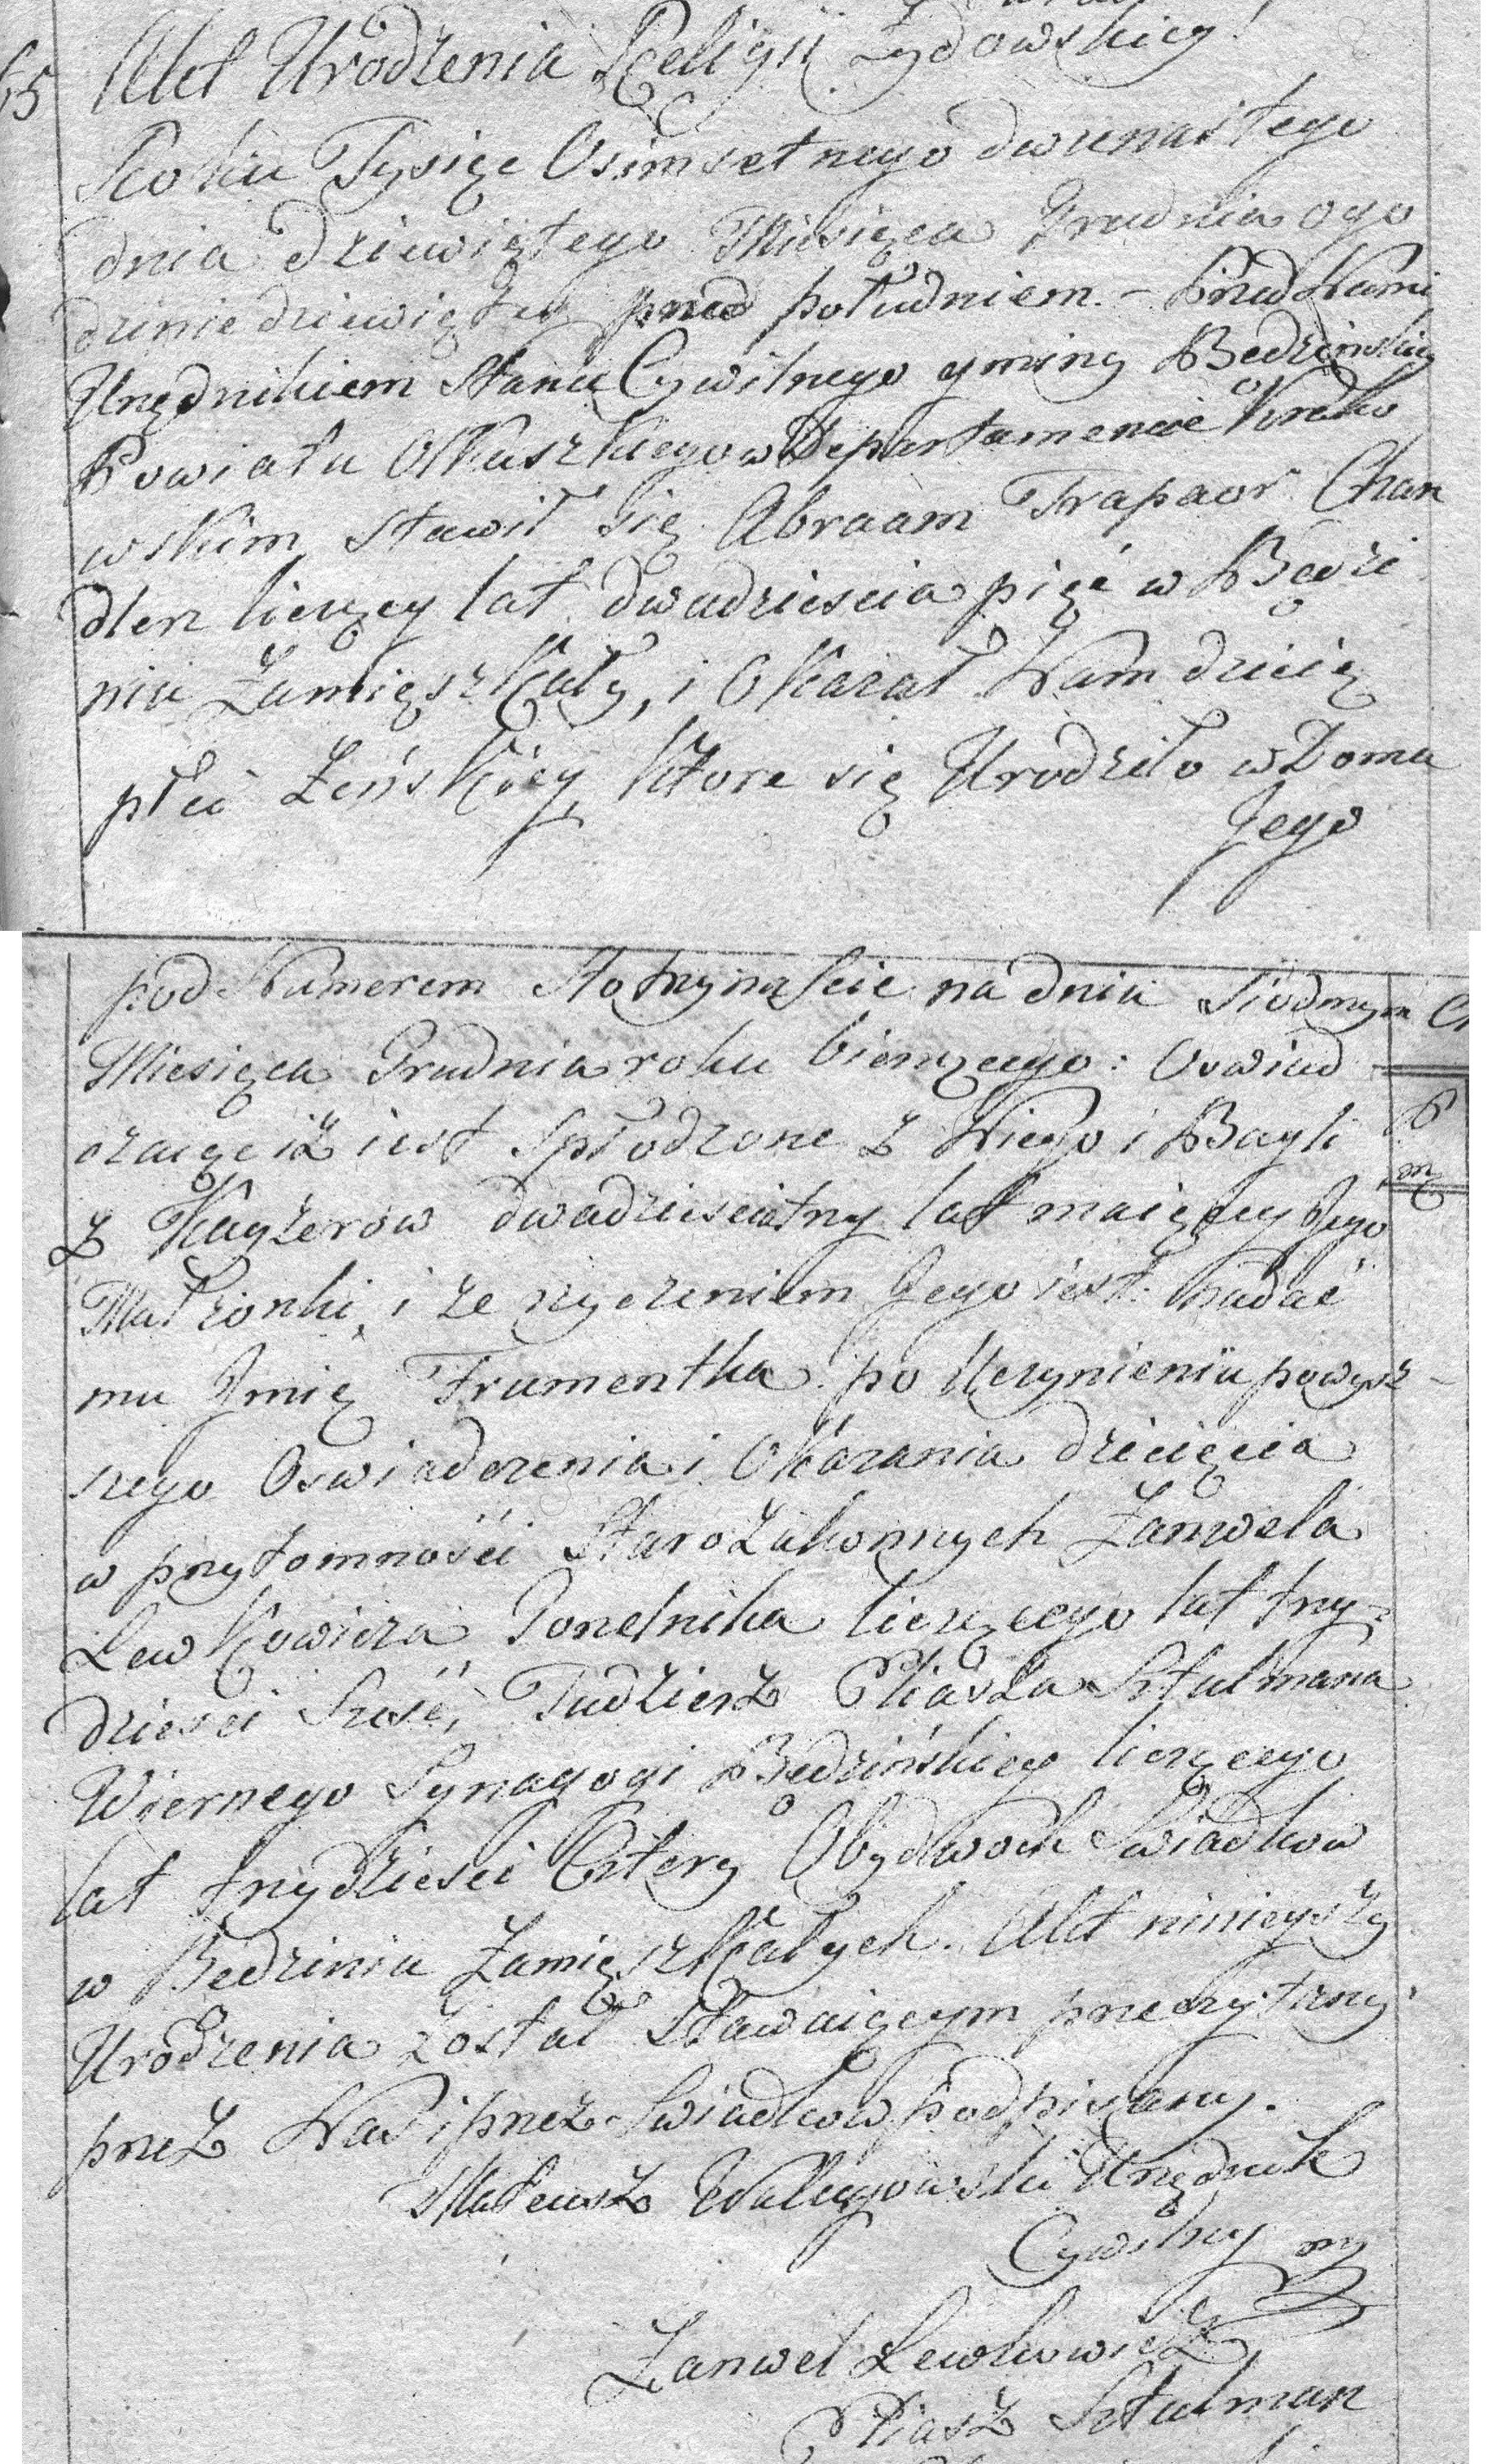 65 Akt Urodzenia Religii Żydowskiey
Roku Tysiąc Osimsetnego dwunastego
dnia dziewiątego Miesiąca Grudnia ogo
dzinie dziewiątey przed południem – Przed Nami
Urzędnikiem Stanu Cywilnego gminy Bedzinskiey
Powiatu Olkuszkiego w Departamencie Krako
wskim stawił się Abraam Frapaor Chan
dlerz liczący lat dwadziescia pięć w Będzi
niu Zamięszkały, i Okazał Nam dziecię
płci Zeńskiéy, które się Urodziło w Domu
Jego
pod Numerem Sto trzynascie na dniu Siodmym
Miesiąca Grudnia roku bieżącego: Oswiad
czaiąc iż iest Spłodzone z Niego i Bayli
z Kayzerow dwadziescia trzy lat maiącey Jego
Małżonki, i ze życzeniem Jego iest nadać
mu Jmię Frumentka po Uczynieniu powyż-
szego Oswiadczenia i Okazania dziecięcia
w przytomności Starozakonnych Zanwela
Lewkowicza Gorzelnika liczącego lat trzy-
dziesci szesć, Tudzierz Eliasza Sztulmana
Wiernego Synagogi Będzińskiey liczącego
lat trzydziesci Cztery Obydwoch Swiadkow
w Bedziniu Zamięszkałych. Akt ninieyszy
Urodzenia został Stawaiącym przeczytany
przez Nas i przez Swiadkow podpisany.
Mateusz Waligowski Urzędnik
Cywilny mp
Zanwel Lewkowicz
Eliasz Sztulman